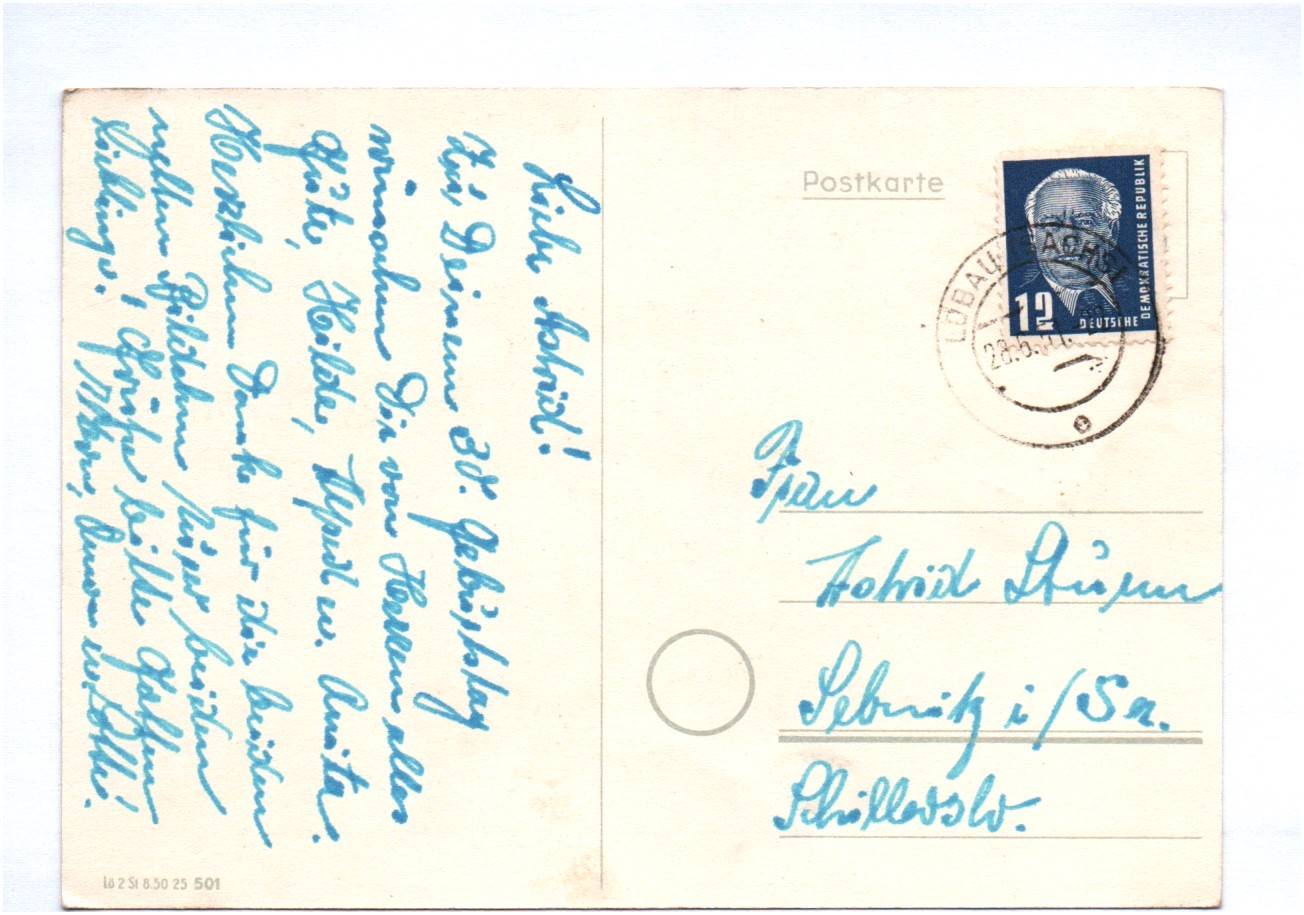 Liebe Astrid!
Zu Deinem 30. Geburtstag
wünschen Dir von Herzen alles
Gute, Hilde, Alfred u. Anita.
Herzlichen Dank für die beiden
netten Bildchen Euer beiden
Lieblinge. Grüße bitte
Mutti u. Lotte!
Postkarte
12
DEUTSCHE
DEMOKRATISCHE REPUBLIK
LÖBAU (SACHS)
28.6.51.
Frau
Astrid Sturm
Sebnitz i/Sa.
Schillerstr.
Lö 2 St 8.50 25 501